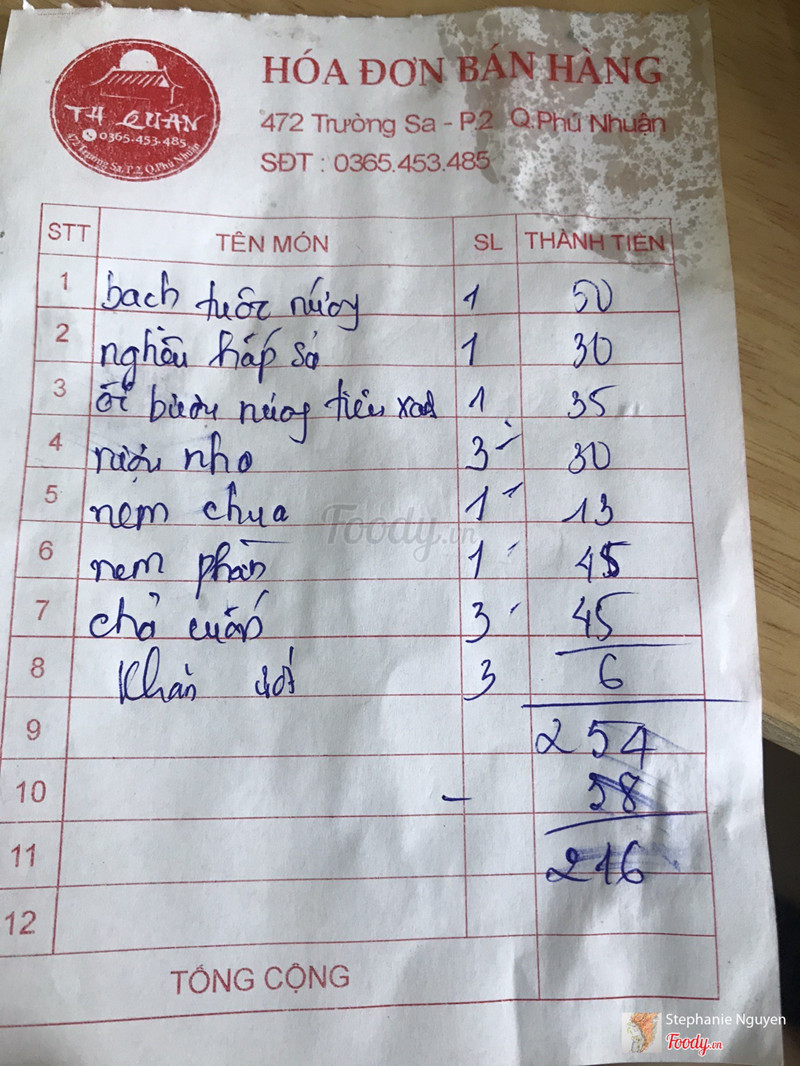 TH QUÁN
0365.453.485
472 Trường Sa, P.2, Q.Phú Nhuận
HÓA ĐƠN BÁN HÀNG
472 Trường Sa - P.2 Q.Phú Nhuận
SĐT : 0365.453.485
STT TÊN MÓN SL THÀNH TIỀN
1 bạch tuộc nướng 1 50
2 nghêu hấp sả 1 30
3 ốc bươu nướng tiêu xanh 1 35
4 rượu nho 3 30
5 nem chua 1 13
6 nem phần 1 45
7 chả cuốn 3 45
8 Khăn ướt 3 6
9 254
10 - 58
11 216
12
TỔNG CỘNG
Foody.vn
Stephanie Nguyen
Foody.vn